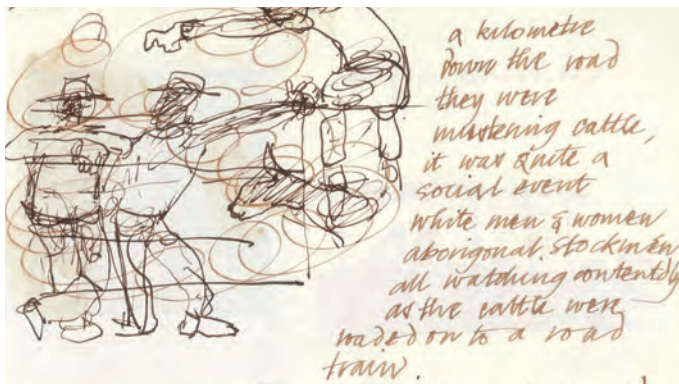 a kilometre
down the road
they were
mustering cattle,
it was quite a
social event
white men & women
aboriginal stockmen
all watching contentedly
as the cattle were
loaded on to a road
train.